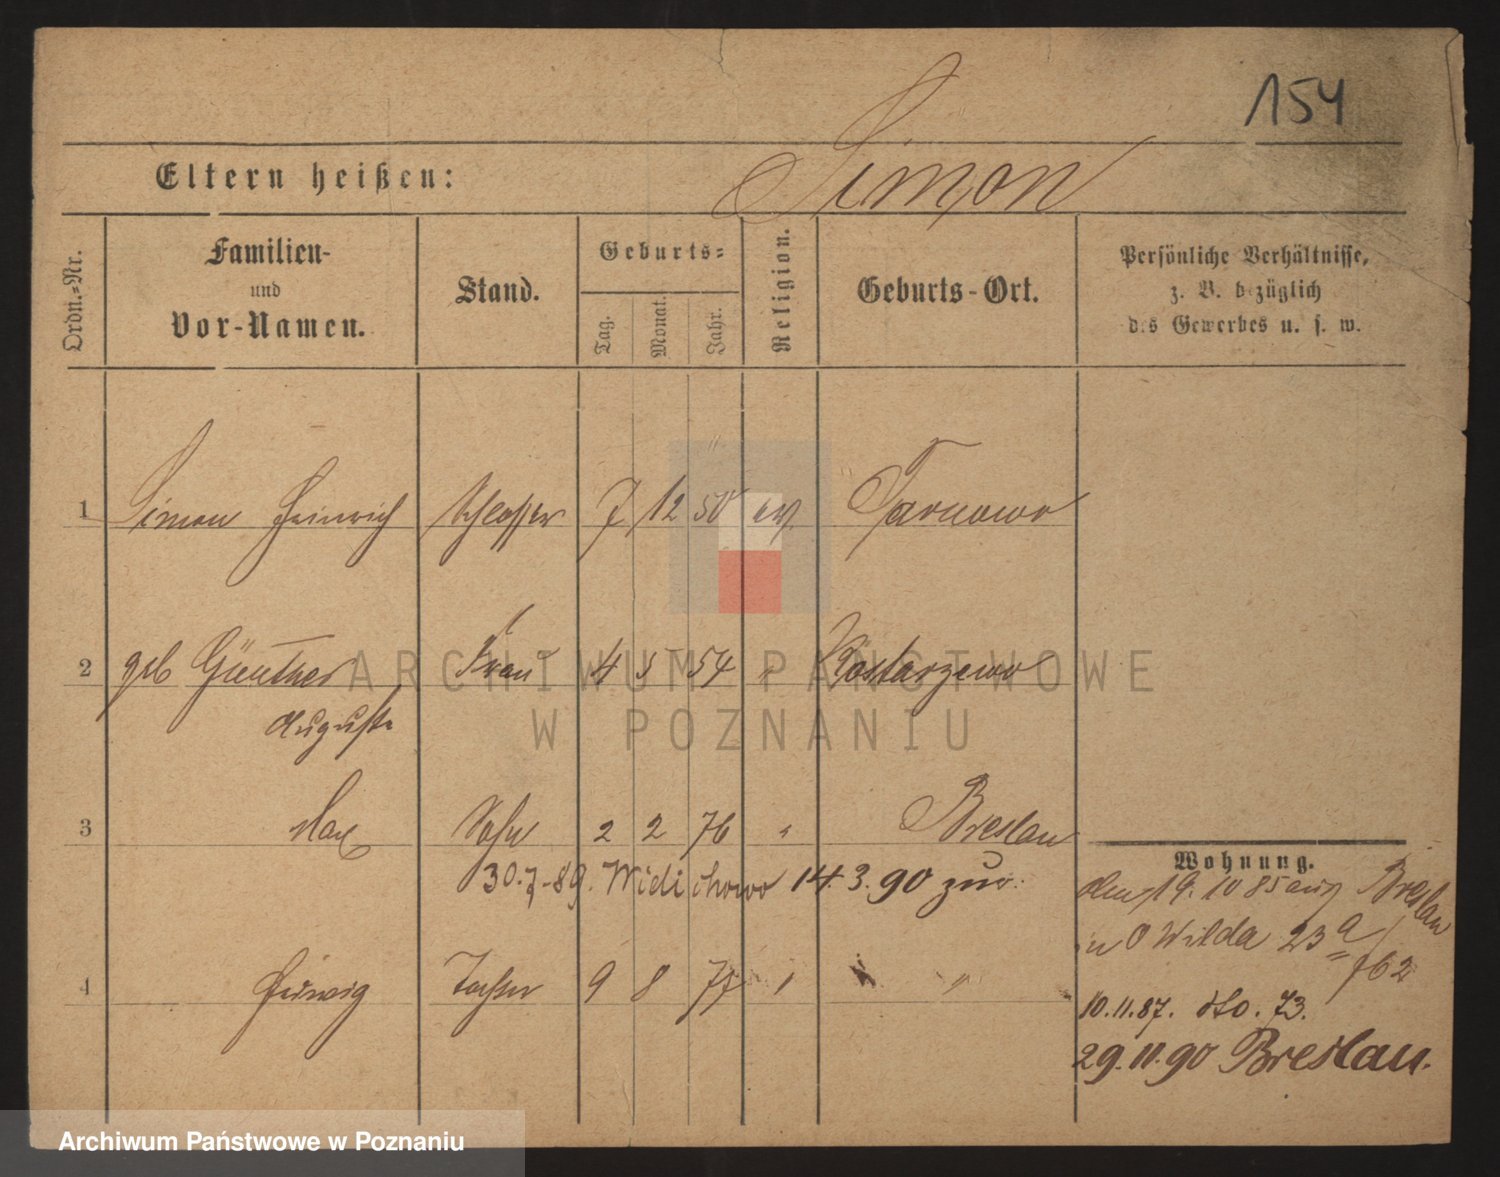 154
Eltern heißen: Simon
Ordn.-Nr.
Familien-
und
Vor-Namen.
Stand.
Geburts-
Tag.
Monat.
Jahr.
Religion.
Geburts-Ort.
Persönliche Verhältnisse,
z. B. bezüglich
des Gewerbes u. s. w.
1 Simon Heinrich Schlosser 7 12 50 ev. Tarnowo
2 geb Günther Frau 4 5 54 " Kostarzewo
Auguste
3 Max Sohn 2 2 76 " Breslau
30.7.89. Widichowo 14.3.90 zur.
4 Hedwig Tochter 9 8 77 " "
Wohnung.
den 19. 10 85 aus Breslau
in O Wilda 23a
10.11.87. dto. 73.
29.11.90 Breslau.
ARCHIWUM PAŃSTWOWE
W POZNANIU
Archiwum Państwowe w Poznaniu